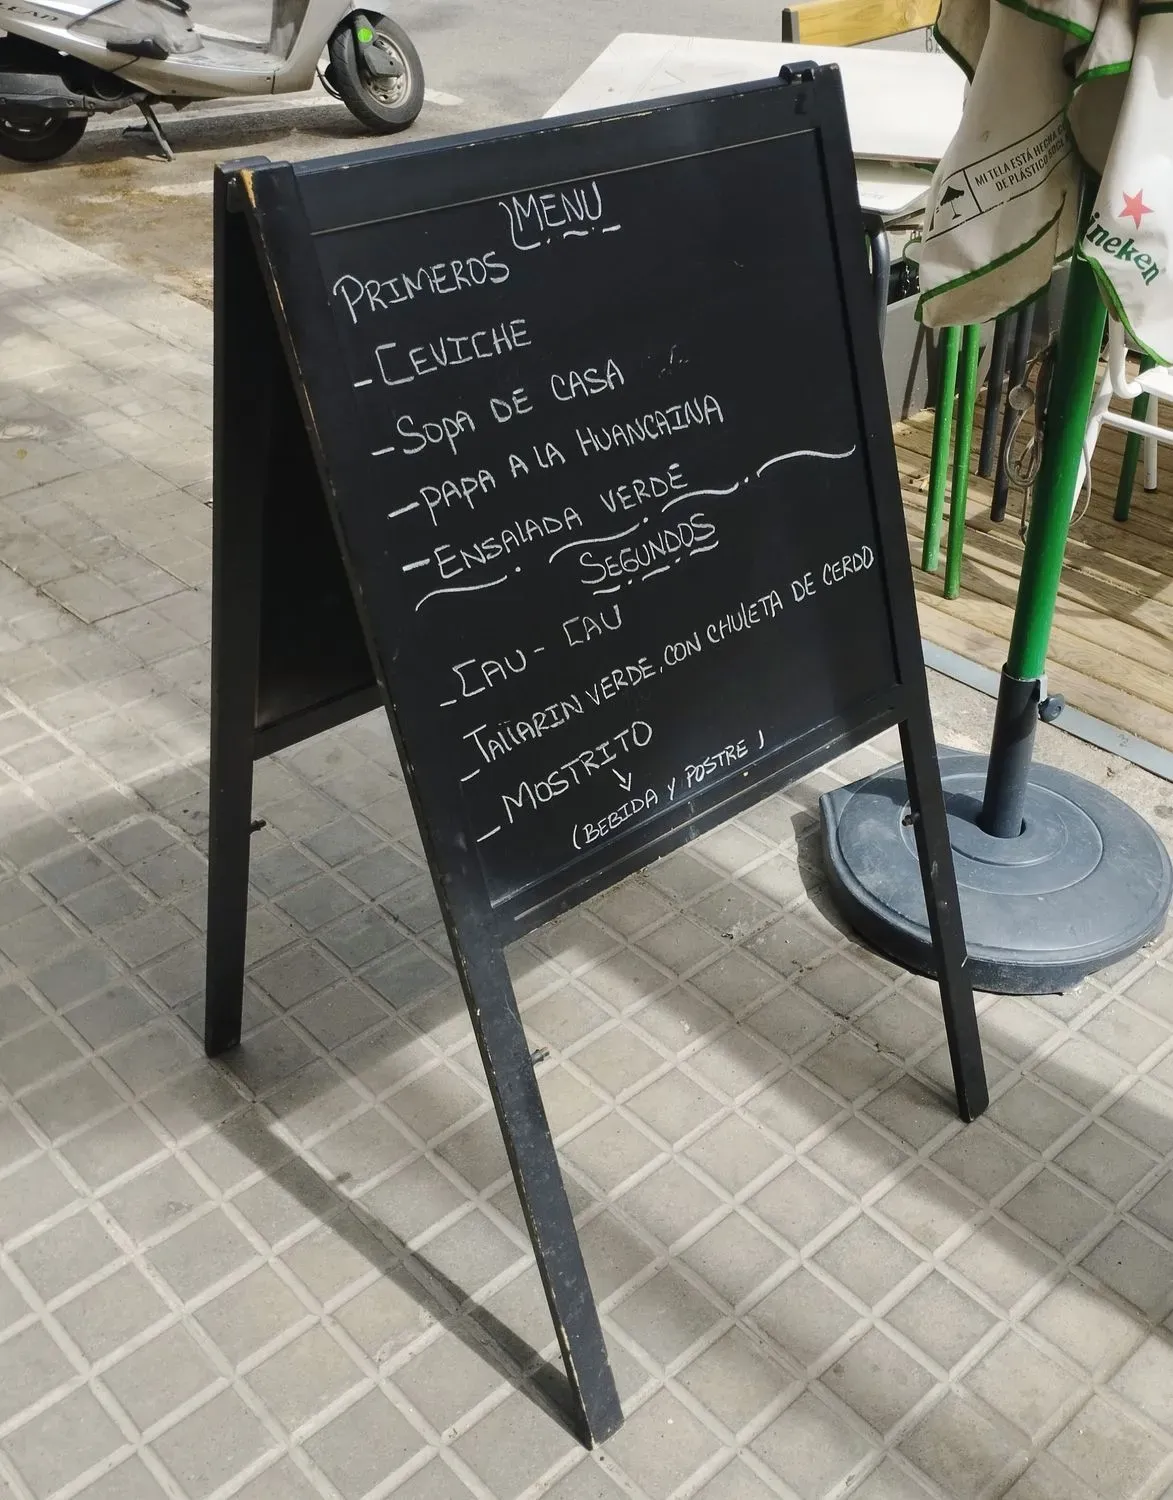 MENU
PRIMEROS
- CEVICHE
- SOPA DE CASA
- PAPA A LA HUANCAINA
- ENSALADA VERDE
SEGUNDOS
- CAU - CAU
- TALLARIN VERDE, CON CHULETA DE CERDO
- MOSTRITO
(BEBIDA Y POSTRE)
MI TELA ESTÁ HECHA
DE PLÁSTICO
ineken